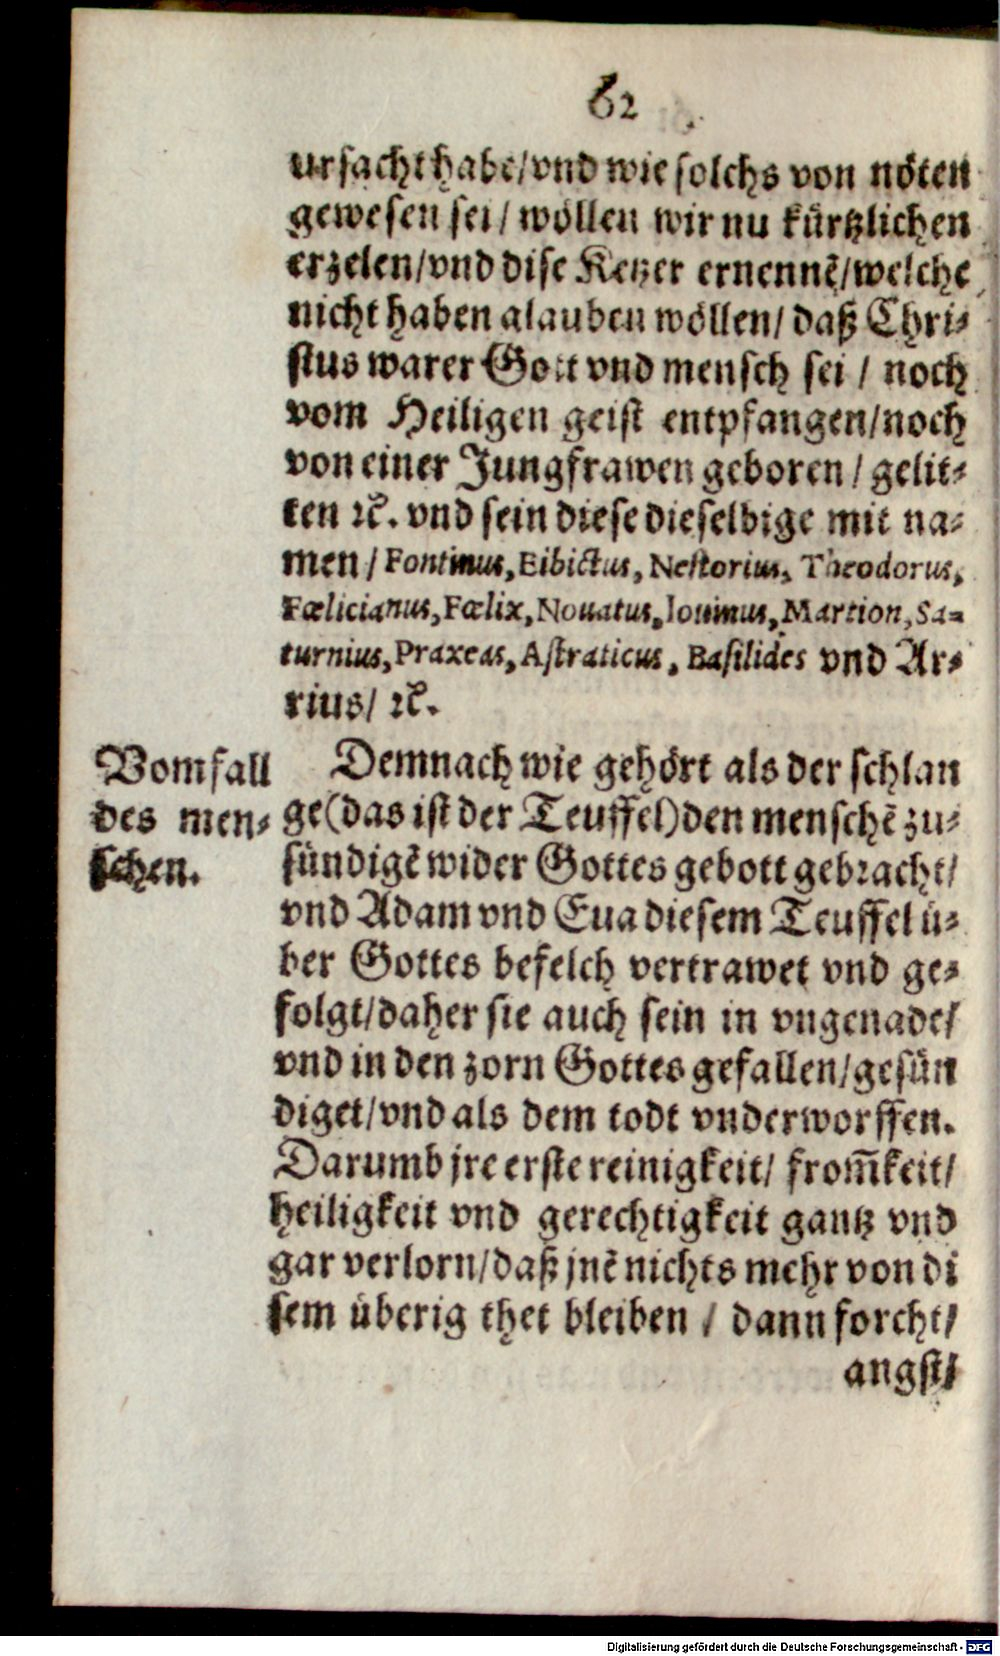 62
ursacht habe/vnd wie solchs von nöten
gewesen sei/ wöllen wir nu kürtzlichen
erzelen/vnd dise Ketzer ernennẽ/welche
nicht haben glauben wöllen/ daß Chri-
stus warer Gott vnd mensch sei / noch
vom Heiligen geist entpfangen/noch
von einer Jungfrawen geboren / gelit-
ten ꝛc. vnd sein diese dieselbige mit na-
men / Fontinus, Eibictus, Nestorius, Theodorus,
Fœlicianus, Fœlix, Nouatus, Iouinus, Martion, Sa-
turnius, Praxeas, Astraticus, Basilides vnd Ar-
rius/ ꝛc.
Vom fall
des men-
schen.
Demnach wie gehört als der schlan
ge(das ist der Teuffel)den menschẽ zu-
sündigẽ wider Gottes gebott gebracht/
vnd Adam vnd Eua diesem Teuffel ü-
ber Gottes befelch vertrawet vnd ge-
folgt/daher sie auch sein in vngenade/
vnd in den zorn Gottes gefallen/gesün
diget/vnd als dem todt vnderworffen.
Darumb jre erste reinigkeit/ from̃keit/
heiligkeit vnd gerechtigkeit gantz vnd
gar verlorn/daß jnẽ nichts mehr von di
sem überig thet bleiben / dann forcht/
angst/
Digitalisierung gefördert durch die Deutsche Forschungsgemeinschaft - DFG